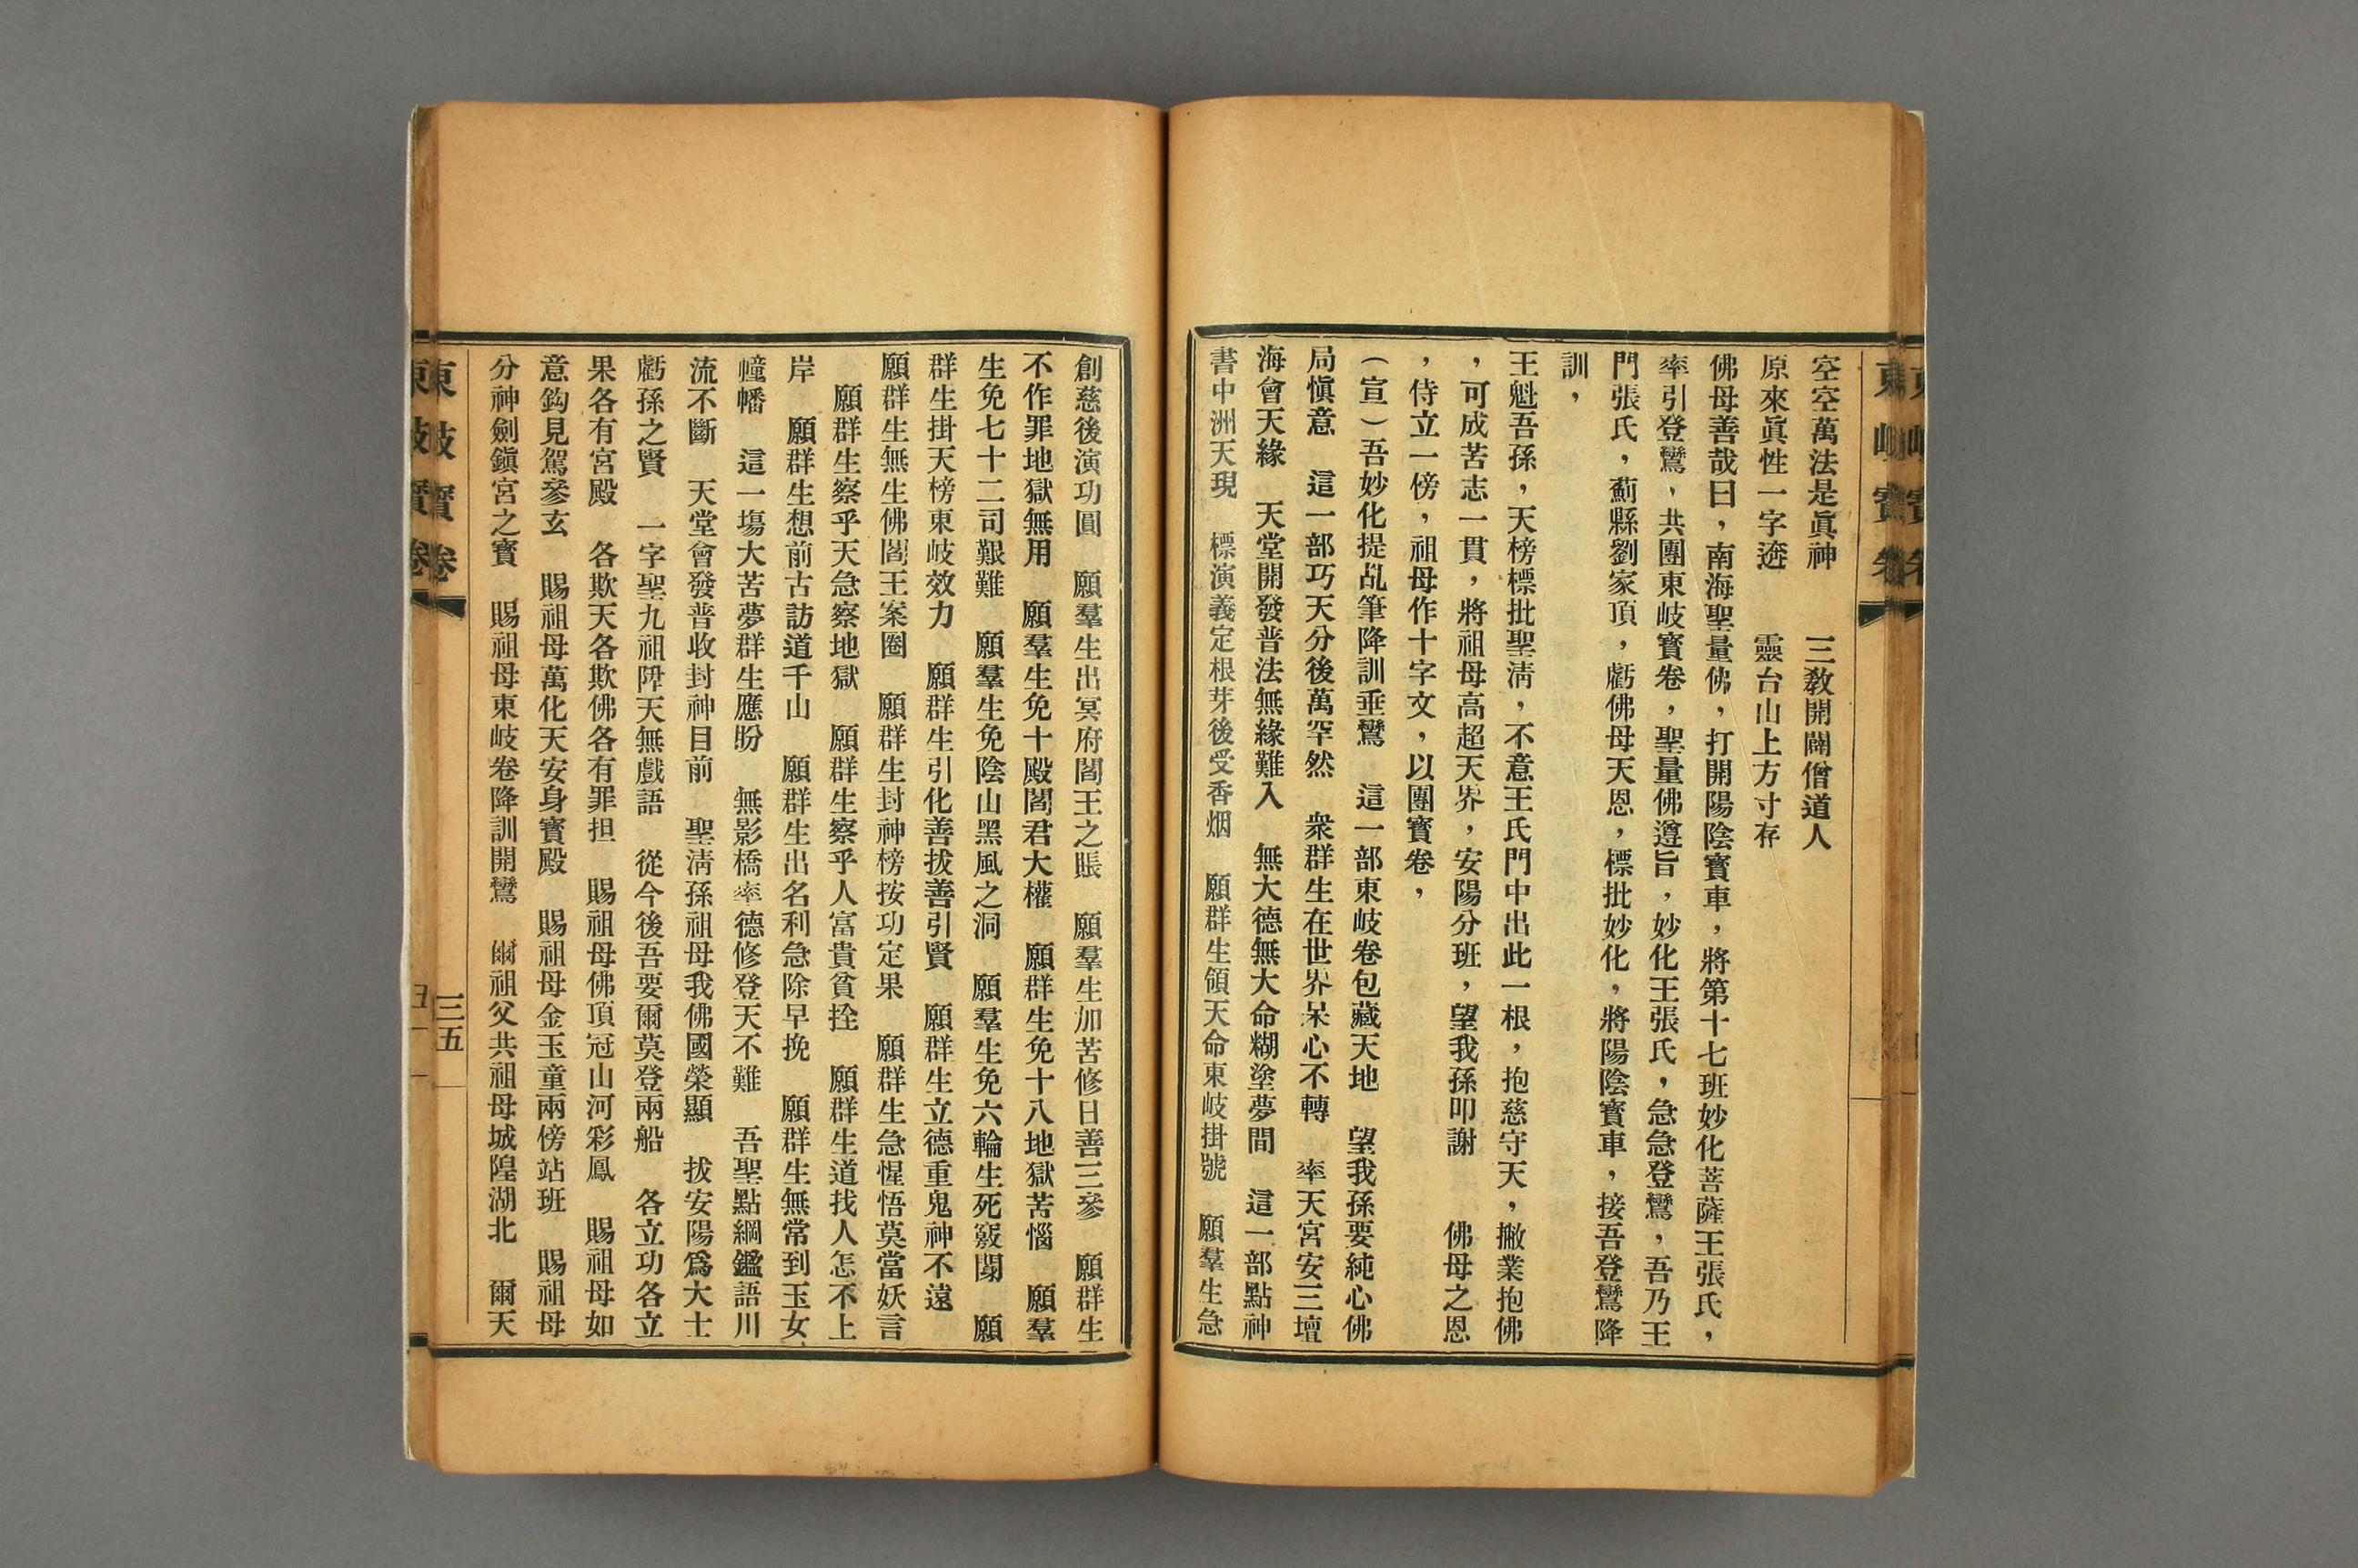 東岐寶卷
空空萬法是眞神　　三敎開闢僧道人
原來眞性一字𨓜　　靈台山上方寸存
佛母善哉曰，南海聖量佛，打開陽陰寶車，將第十七班妙化菩薩王張氏，
率引登鸞，共團東岐寶卷，聖量佛遵旨，妙化王張氏，急急登鸞，吾乃王
門張氏，薊縣劉家頂，虧佛母天恩，標批妙化，將陽陰寶車，接吾登鸞降
訓，
王魁吾孫，天榜標批聖淸，不意王氏門中出此一根，抱慈守天，撇業抱佛
，可成苦志一貫，將祖母高超天界，安陽分班，望我孫叩謝　　佛母之恩
，侍立一傍，祖母作十字文，以團寶卷，
（宣）吾妙化提乩筆降訓垂鸞　這一部東岐卷包藏天地　望我孫要純心佛
局愼意　這一部巧天分後萬罕然　衆群生在世界呆心不轉　率天宮安三壇
海會天緣　天堂開發普法無緣難入　無大德無大命糊塗夢間　這一部點神
書中洲天現　標演義定根芽後受香烟　願群生領天命東岐掛號　願羣生急
創慈後演功圓　願羣生出冥府閻王之賬　願羣生加苦修日善三參　願群生
不作罪地獄無用　願羣生免十殿閻君大權　願群生免十八地獄苦惱　願羣
生免七十二司艱難　願羣生免陰山黑風之洞　願羣生免六輪生死竅閗　願
群生掛天榜東岐效力　願群生引化善拔善引賢　願群生立德重鬼神不遠
願群生無生佛閻王案圈　願群生封神榜按功定果　願群生急惺悟莫當妖言
　願群生察乎天急察地獄　願群生察乎人富貴貧拴　願群生道找人怎不上
岸　願群生想前古訪道千山　願群生出名利急除早挽　願群生無常到玉女
幢幡　這一塲大苦夢群生應盼　無影橋率德修登天不難　吾聖點綱鑑語川
流不斷　天堂會發普收封神目前　聖淸孫祖母我佛國榮顯　拔安陽爲大士
虧孫之賢　一字聖九祖陞天無戲語　從今後吾要爾莫登兩船　各立功各立
果各有宮殿　各欺天各欺佛各有罪担　賜祖母佛頂冠山河彩鳳　賜祖母如
意鈎見駕參玄　賜祖母萬化天安身寶殿　賜祖母金玉童兩傍站班　賜祖母
分神劍鎭宮之寶　賜祖母東岐卷降訓開鸞　爾祖父共祖母城隍湖北　爾天
東岐寶卷
三五